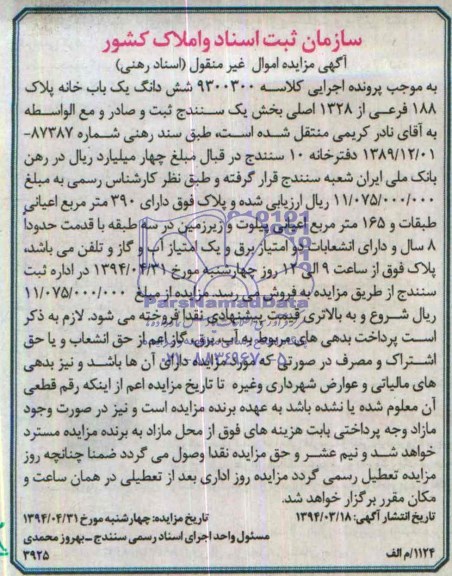 سازمان ثبت اسناد واملاک کشور
آگهی مزایده اموال غیر منقول (اسناد رهنی)
به موجب پرونده اجرایی کلاسه ۹۳۰۰۳۰۰ شش دانگ یک باب خانه پلاک
۱۸۸ فرعی از ۱۳۲۸ اصلی بخش یک سنندج ثبت و صادر و مع الواسطه
به آقای نادر کریمی منتقل شده است، طبق سند رهنی شماره ۸۷۳۸۷-
۱۳۸۹/۱۲/۰۱ دفترخانه ۱۰ سنندج در قبال مبلغ چهار میلیارد ریال در رهن
بانک ملی ایران شعبه سنندج قرار گرفته و طبق نظر کارشناس رسمی به مبلغ
۱۱/۰۷۵/۰۰۰/۰۰۰ ریال ارزیابی شده و پلاک فوق دارای ۳۹۰ متر مربع اعیانی
طبقات و ۱۶۵ متر مربع اعیانی پیلوت و زیرزمین در سه طبقه با قدمت حدوداً
۸ سال و دارای انشعابات دو امتیاز برق و یک امتیاز آب و گاز و تلفن می باشد،
پلاک فوق از ساعت ۹ الی ۱۲ روز چهارشنبه مورخ ۱۳۹۴/۰۴/۳۱ در اداره ثبت
سنندج از طریق مزایده به فروش می رسد. مزایده از مبلغ ۱۱/۰۷۵/۰۰۰/۰۰۰
ریال شروع و به بالاتری قیمت پیشنهادی نقدا فروخته می شود. لازم به ذکر
است پرداخت بدهی های مربوط به آب، برق، گاز اعم از حق انشعاب و یا حق
اشتراک و مصرف در صورتی که مورد مزایده دارای آن ها باشد و نیز بدهی
های مالیاتی و عوارض شهرداری وغیره تا تاریخ مزایده اعم از اینکه رقم قطعی
آن معلوم شده یا نشده باشد به عهده برنده مزایده است و نیز در صورت وجود
مازاد وجه پرداختی بابت هزینه های فوق از محل مازاد به برنده مزایده مسترد
خواهد شد و نیم عشر و حق مزایده نقدا وصول می گردد ضمنا چنانچه روز
مزایده تعطیل رسمی گردد مزایده روز اداری بعد از تعطیلی در همان ساعت و
مکان مقرر برگزار خواهد شد.
تاریخ انتشار آگهی: ۱۳۹۴/۰۳/۱۸ تاریخ مزایده: چهارشنبه مورخ ۱۳۹۴/۰۴/۳۱
مسئول واحد اجرای اسناد رسمی سنندج - بهروز محمدی
۱۱۲۴/م الف ۳۹۲۵
ParsNamadData
۰۲۱-۸۸۳۴۹۶۷۰-۵